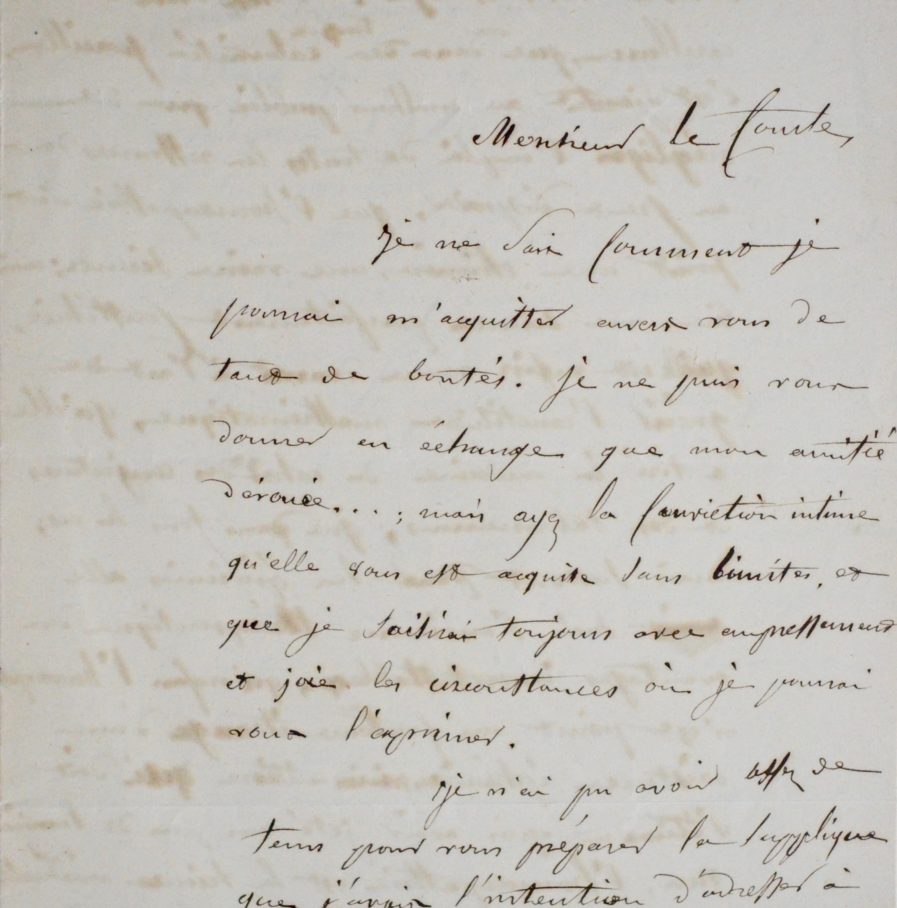 Monsieur le Comte,
je ne sais comment je
pourrai m'acquitter envers vous de
tant de bontés. je ne puis vous
donner en échange que mon amitié
dévouée...; mais ayez la conviction intime
qu'elle vous est acquise sans limites, et
que je saisirai toujours avec empressement
et joie les circonstances où je pourrai
vous l'exprimer.
je n'ai pu avoir assez de
tems pour vous préparer la supplique
que j'avais l'intention d'adresser à